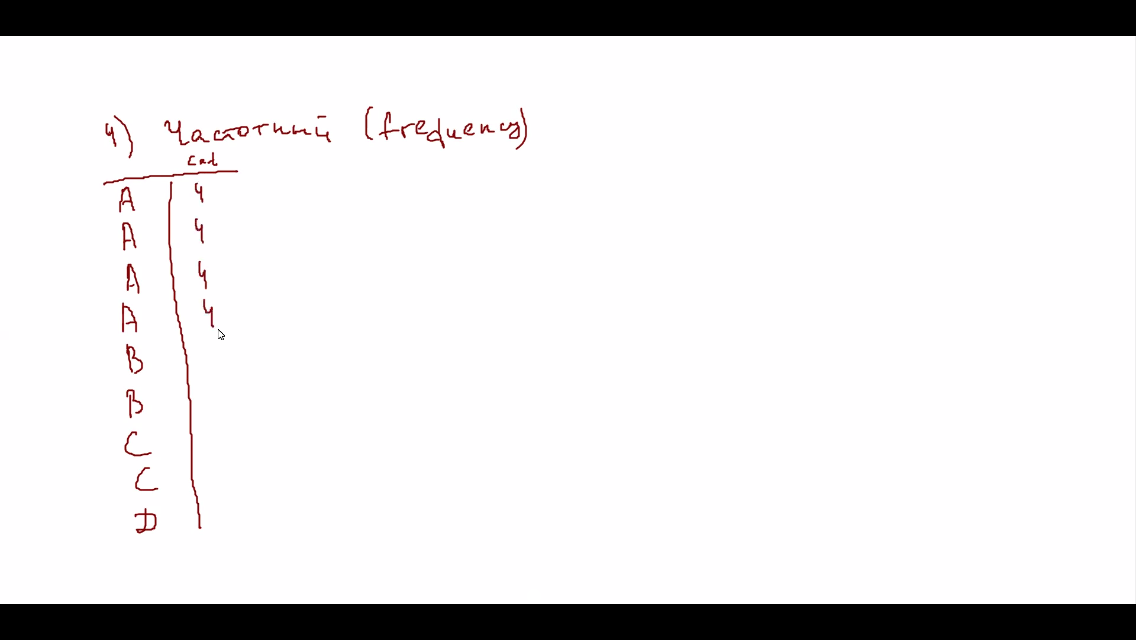 4) Частотный (frequency)
A 4
A 4
A 4
A 4
B
B
C
C
D